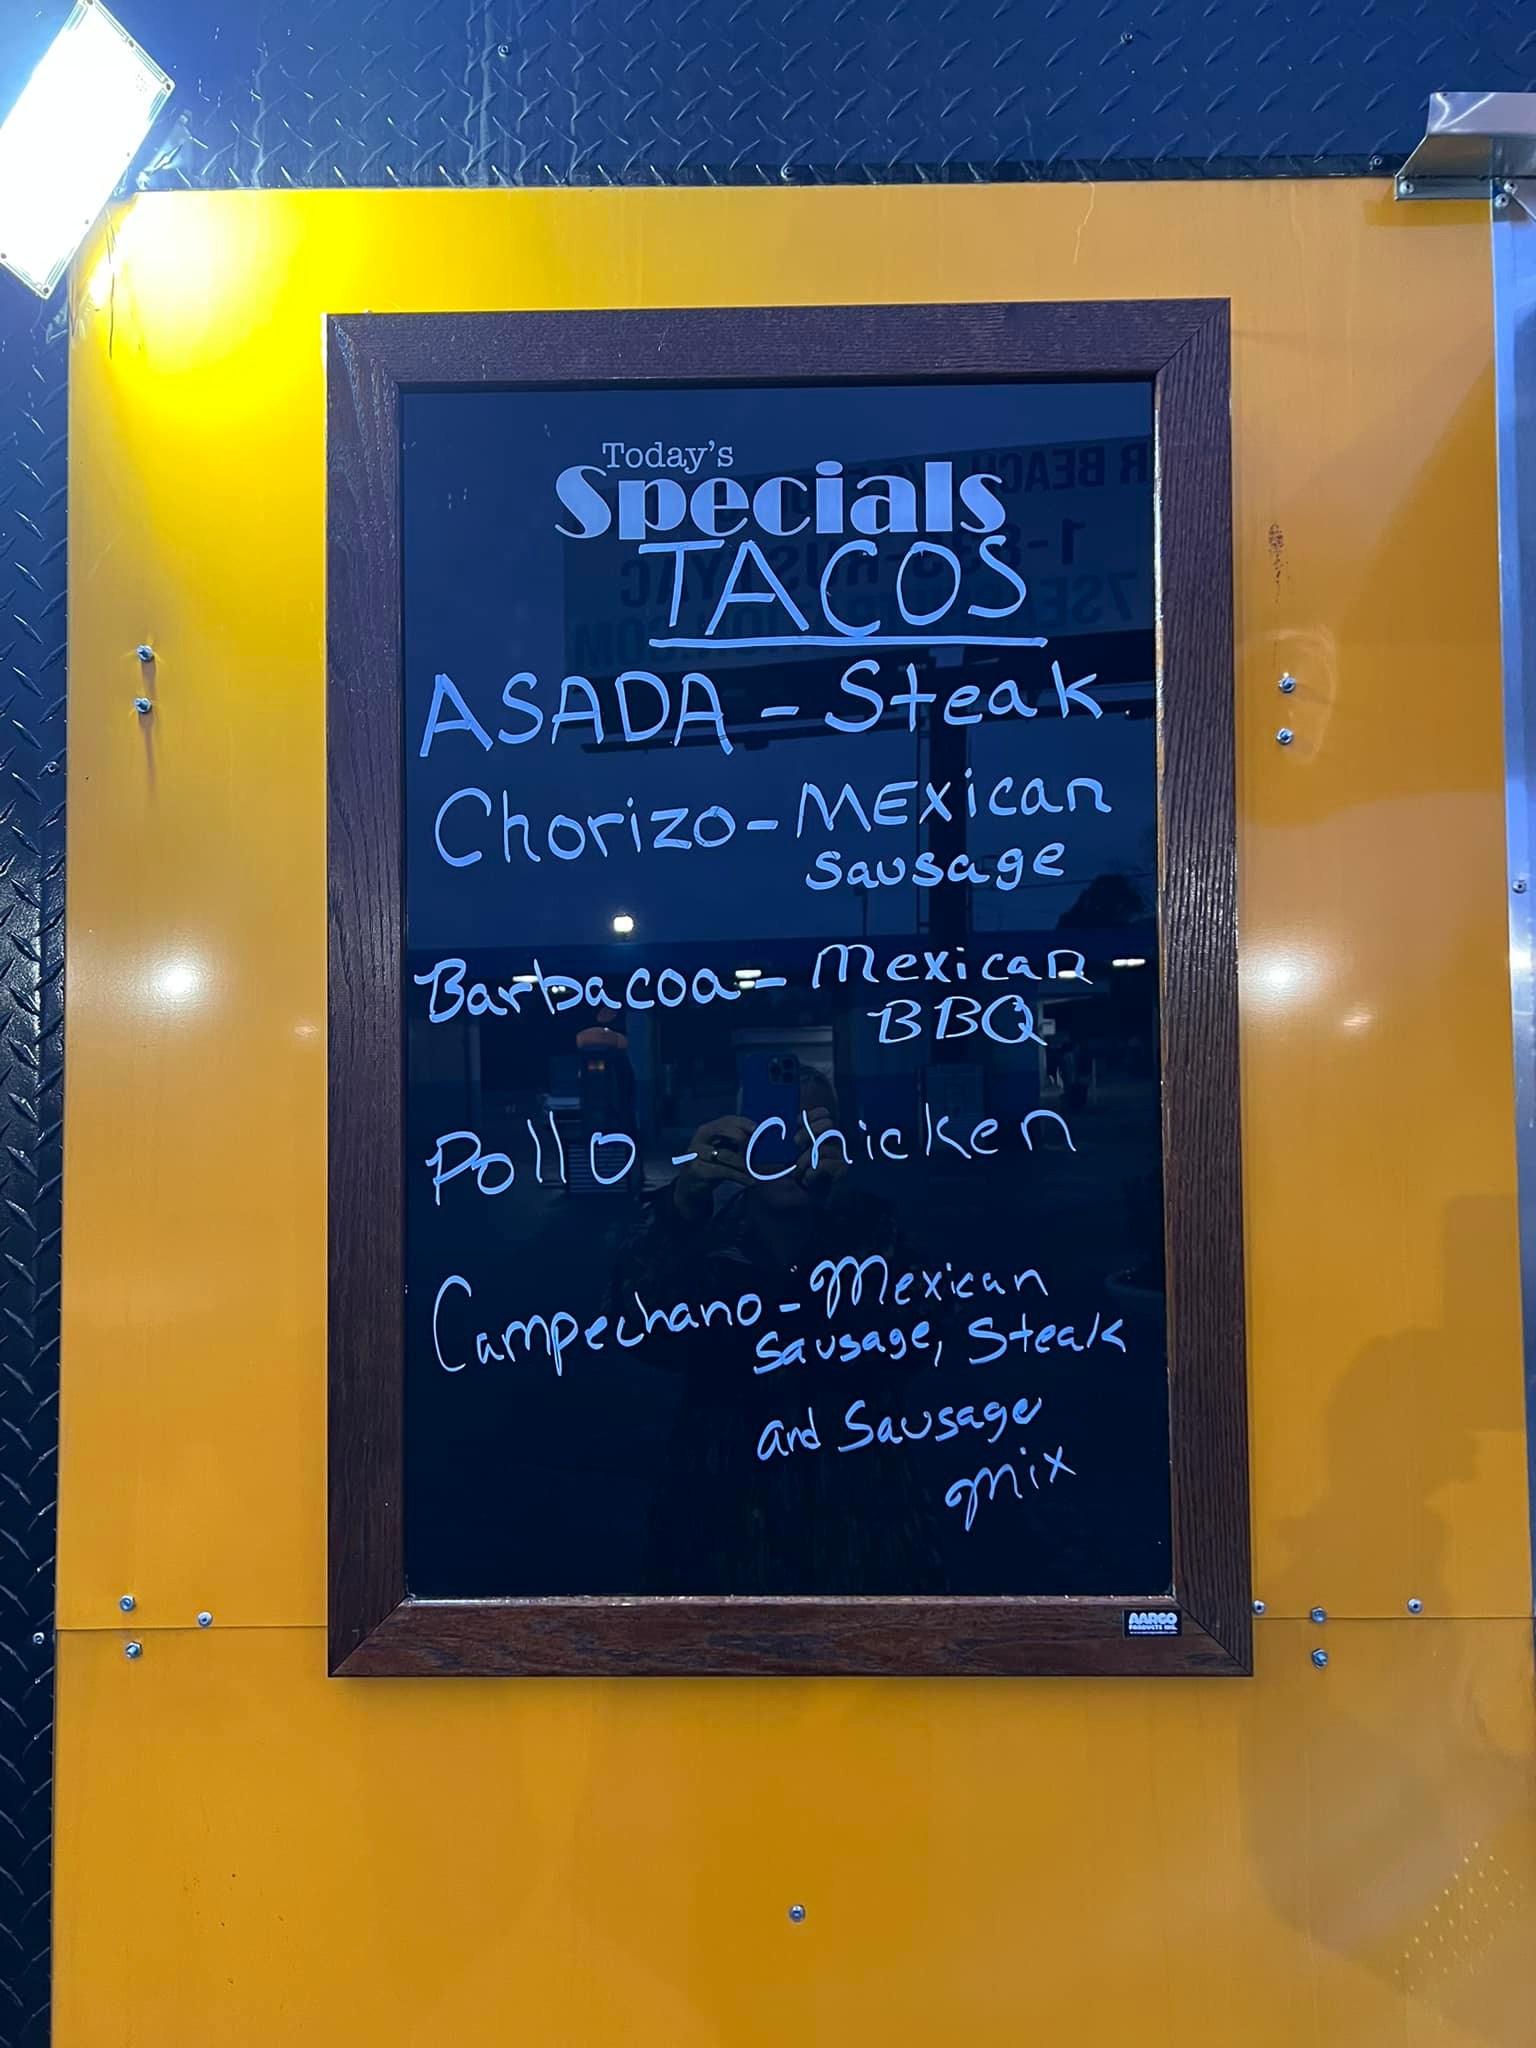 Today's
Specials
TACOS
ASADA - Steak
Chorizo - MEXican
Sausage
Barbacoa - Mexican
BBQ
Pollo - Chicken
Campechano - Mexican
Sausage, Steak
and Sausage
Mix
AARCO
PRODUCTS INC.
R BEACH
1-833-RUSTYAC
7SE
.COM